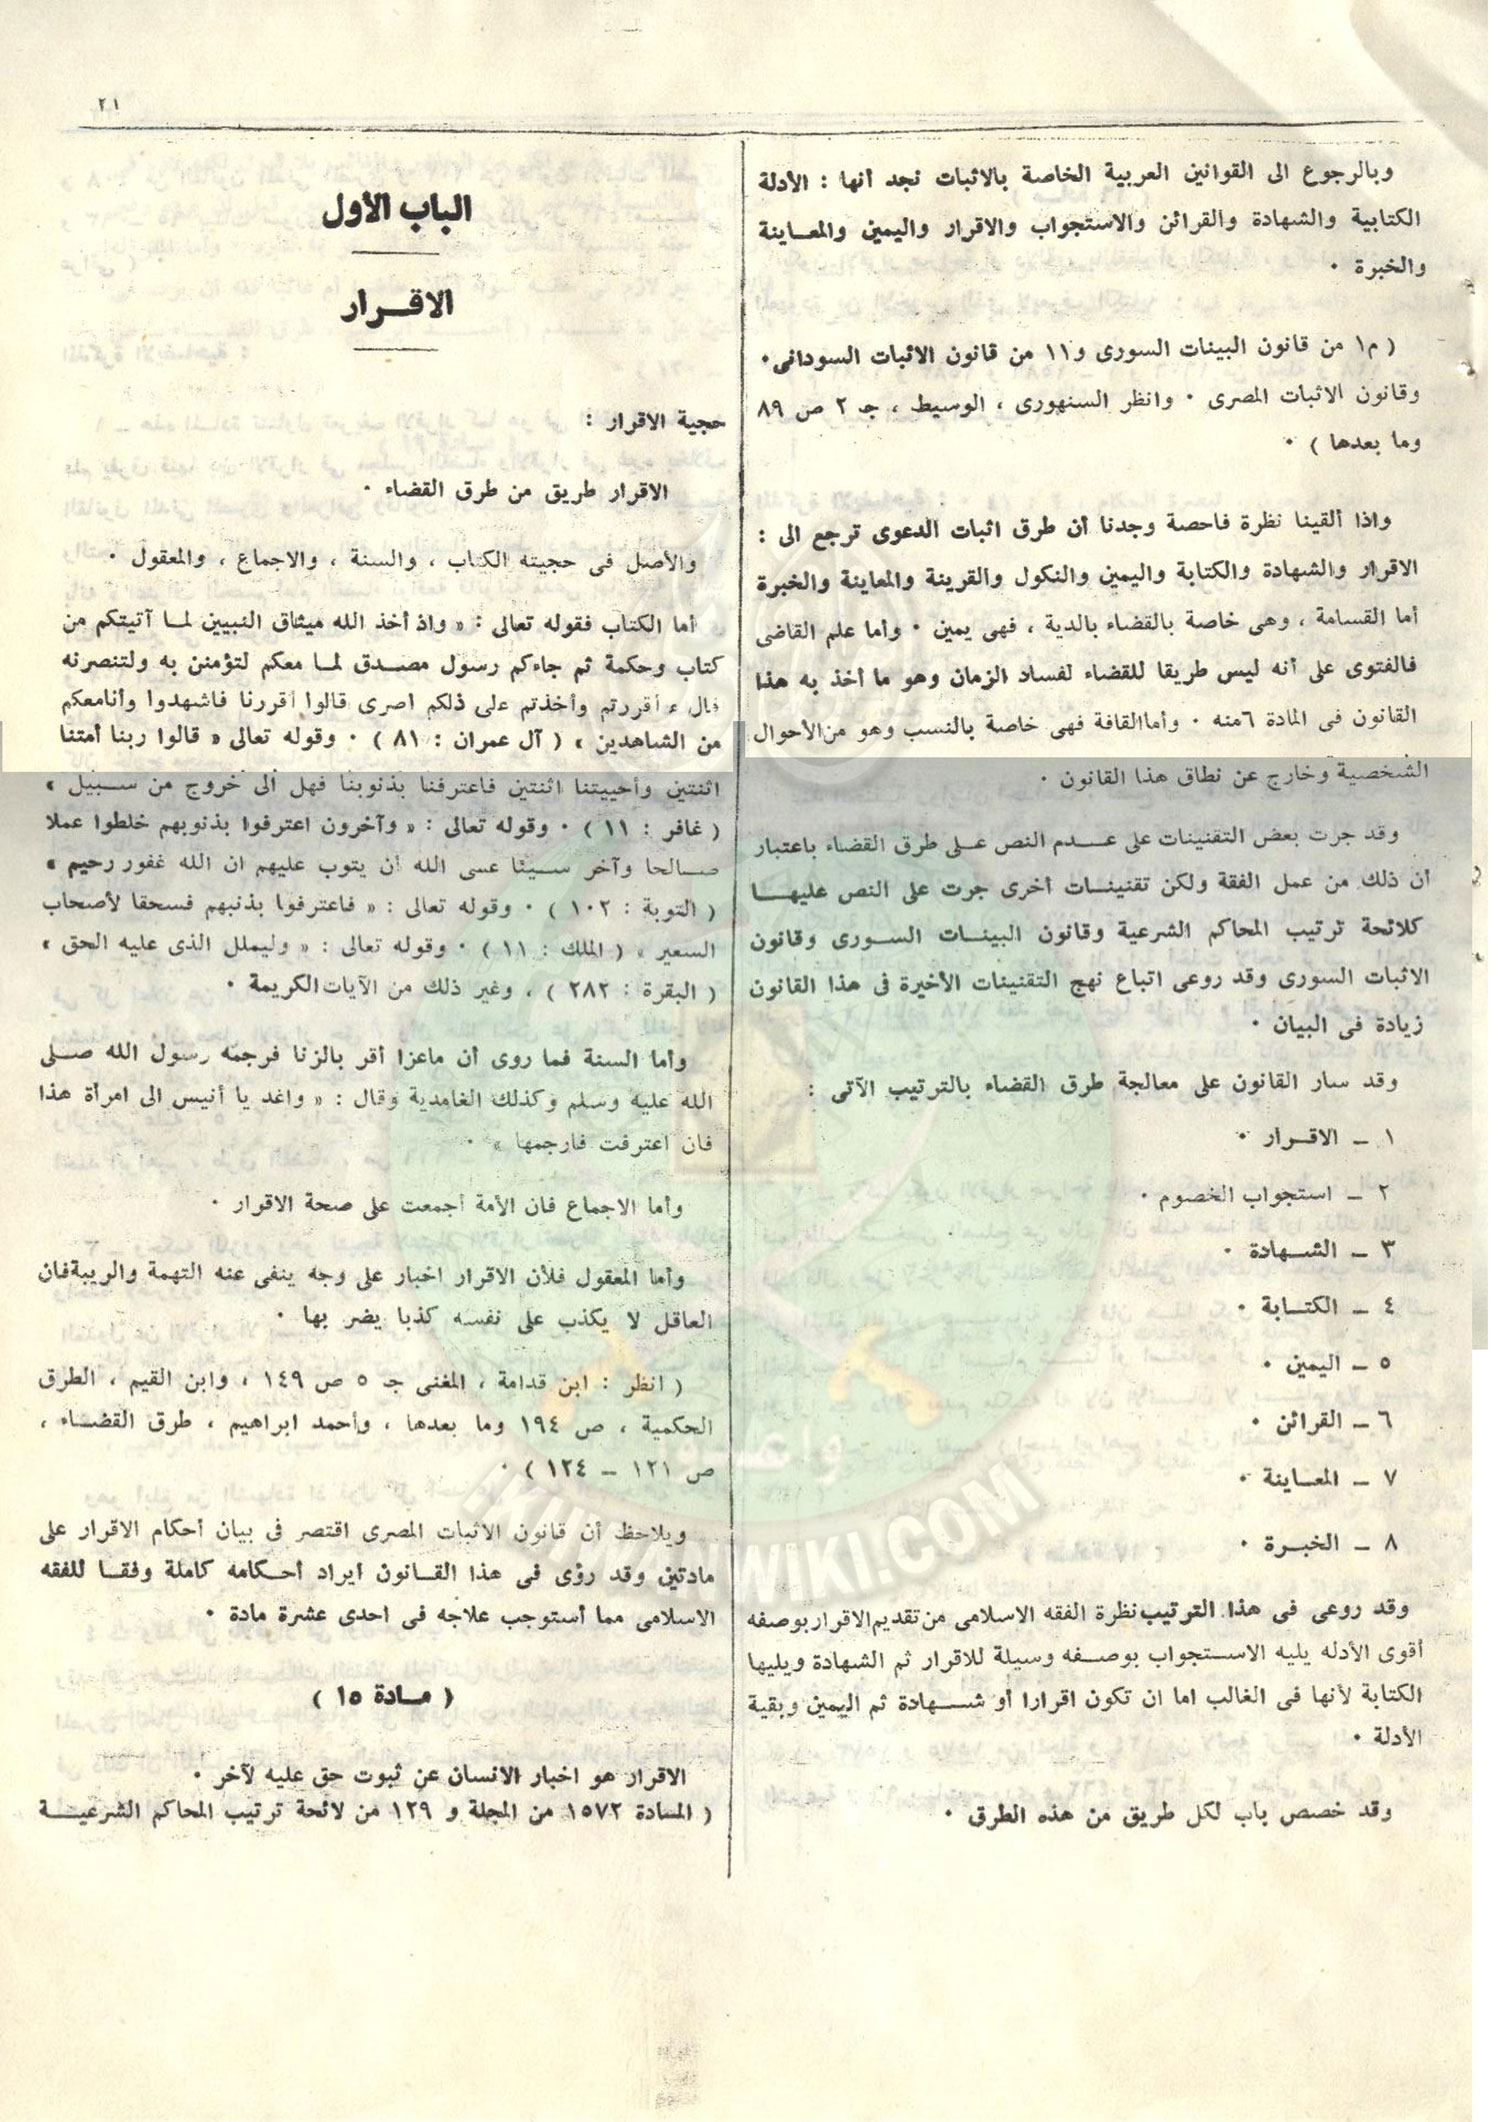 ٢١
وبالرجوع الى القوانين العربية الخاصة بالاثبات نجد أنها : الأدلة
الكتابية والشهادة والقرائن والاستجواب والاقرار واليمين والمعـاينة
والخبرة ٠
( م١ من قانون البينات السورى و١١ من قانون الاثبات السودانى٠
وقانون الاثبات المصرى ٠ وانظر السنهورى ، الوسيط ، جـ ٢ ص ٨٩
وما بعدها ) ٠
واذا ألقينا نظرة فاحصة وجدنا أن طرق اثبات الدعوى ترجع الى :
الاقرار والشهادة والكتابة واليمين والنكول والقرينة والمعاينة والخبرة
أما القسامة ، وهى خاصة بالقضاء بالدية ، فهى يمين ٠ وأما علم القاضى
فالفتوى على أنه ليس طريقا للقضاء لفساد الزمان وهو ما أخذ به هذا
القانون فى المادة ٦منه ٠ وأماالقافة فهى خاصة بالنسب وهو من الأحوال
الشخصية وخارج عن نطاق هذا القانون ٠
وقد جرت بعض التقنينات على عـــدم النص عـلى طرق القضاء باعتبار
أن ذلك من عمل الفقة ولكن تقنينـات أخرى جرت على النص عليهـــا
كلائحة ترتيب المحاكم الشرعية وقانون البينـات السـورى وقانون
الاثبات السورى وقد روعى اتباع نهج التقنينات الأخيرة فى هذا القانون
زيادة فى البيان ٠
وقد سار القانون على معالجة طرق القضاء بالترتيب الآتى :
١ ـ الاقـرار ٠
٢ ـ استجواب الخصوم ٠
٣ ـ الشـهادة ٠
٤ ـ الكتـابة ٠
٥ ـ اليمين ٠
٦ ـ القرائن ٠
٧ ـ المعاينة ٠
٨ ـ الخبـرة ٠
وقد روعى فى هذا الترتيب نظرة الفقه الاسلامى من تقديم الاقرار بوصفه
أقوى الأدله يليه الاسـتجواب بوصـفه وسيلة للاقرار ثم الشهادة ويليها
الكتابة لأنها فى الغالب اما ان تكون اقرارا أو شـهادة ثم اليمين وبقية
الأدلة ٠
وقد خصص باب لكل طريق من هذه الطرق ٠
الباب الأول
الاقـرار
حجية الاقرار :
الاقرار طريق من طرق القضاء ٠
والأصل فى حجيته الكتاب ، والسنة ، والاجماع ، والمعقول ٠
أما الكتاب فقوله تعالى : « واذ أخذ الله ميثاق النبيين لمـا آتيتكم من
كتاب وحكمة ثم جاءكم رسول مصـدق لمـا معكم لتؤمنن به ولتنصرنه
قال ء أقررتم وأخذتم على ذلكم اصرى قالوا أقررنا فاشهدوا وأنامعكم
من الشاهدين » ( آل عمران : ٨١ ) ٠ وقوله تعالى « قالوا ربنا أمتنا
اثنتين وأحييتنا اثنتين فاعترفنا بذنوبنا فهل الى خروج من سـبيل »
( غافر : ١١ ) ٠ وقوله تعالى : « وآخرون اعترفوا بذنوبهم خلطوا عملا
صـالحا وآخر سـيئا عسى الله أن يتوب عليهم ان الله غفور رحيم »
( التوبة : ١٠٢ ) ٠ وقوله تعالى : « فاعترفوا بذنبهم فسحقا لأصحاب
السعير » ( الملك : ١١ ) ٠ وقوله تعالى : « وليملل الذى عليه الحق »
( البقرة : ٢٨٢ ) ، وغير ذلك من الآيات الكريمة ٠
وأما السنة فما روى أن ماعزا أقر بالزنا فرجمه رسول الله صـلى
الله عليه وسلم وكذلك الغامدية وقال : « واغد يا أنيس الى امرأة هذا
فان اعترفت فارجمها » ٠
وأما الاجماع فان الأمة أجمعت على صحة الاقرار ٠
وأما المعقول فلأن الاقرار اخبار على وجه ينفى عنه التهمة والريبةفان
العاقل لا يكذب على نفسه كذبا يضر بها ٠
( انظر : ابن قدامة ، المغنى جـ ٥ ص ١٤٩ ، وابن القيم ، الطرق
الحكمية ، ص ١٩٤ وما بعدها ، وأحمد ابراهيم ، طرق القضـاء ،
ص ١٢١ ـ ١٢٤ ) ٠
ويلاحظ أن قانون الاثبات المصرى اقتصر فى بيان أحكام الاقرار على
مادتين وقد رؤى فى هذا القـانون ايراد أحـكامه كاملة وفقـا للفقه
الاسلامى مما أستوجب علاجه فى احدى عشرة مادة ٠
( مـادة ١٥ )
الاقرار هو اخبار الانسان عن ثبوت حق عليه لآخر ٠
( المـادة ١٥٧٢ من المجلة و ١٢٩ من لائحة ترتيب المحاكم الشرعيـــة
IKHWANWIKI.COM
وأعدوا